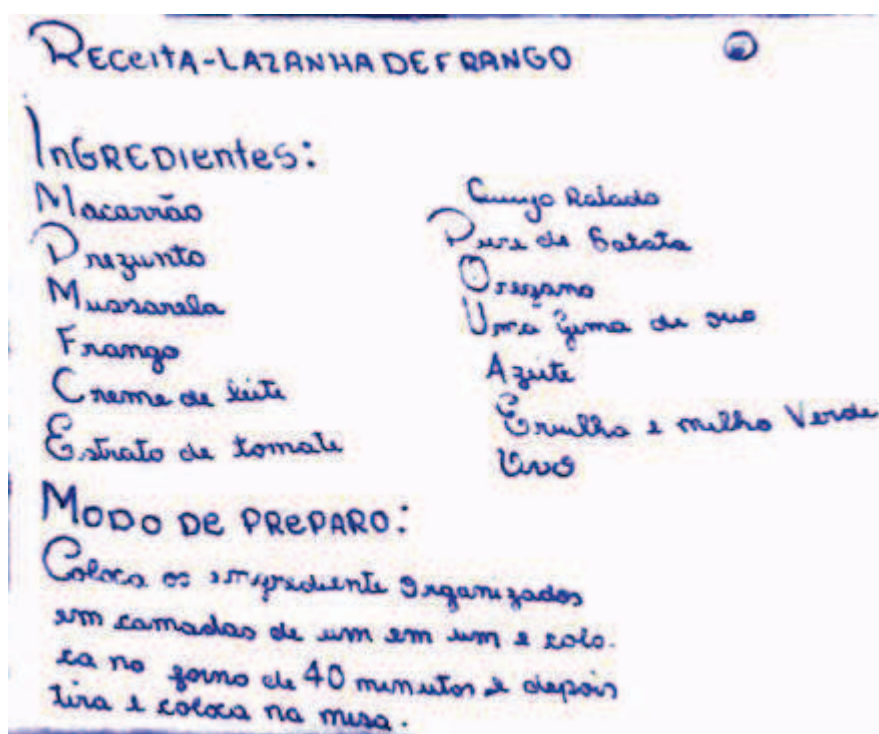 RECEITA-LAZANHA DE FRANGO
INGREDIENTES:
Macarrão
Prezunto
Mussarela
Frango
Creme de leite
Estrato de tomate
Queijo Ralado
Pure de Batata
Oregano
Uma gema de ovo
Azeite
Ervilha e milho Verde
MODO DE PREPARO:
Coloca os ingrediente organizados
em camadas de um em um e colo.
ca no forno de 40 minutos e depois
tira e coloca na mesa.